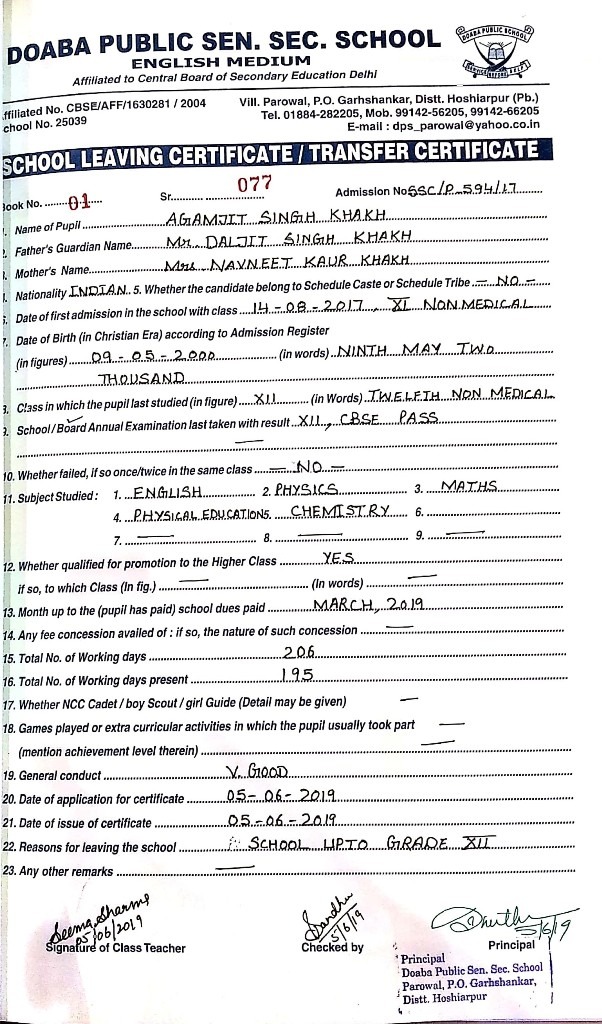 DOABA PUBLIC SEN. SEC. SCHOOL
ENGLISH MEDIUM
Affiliated to Central Board of Secondary Education Delhi
DOABA PUBLIC SCHOOL
SERVICE BEFORE SELF
ffiliated No. CBSE/AFF/1630281 / 2004
chool No. 25039
Vill. Parowal, P.O. Garhshankar, Distt. Hoshiarpur (Pb.)
Tel. 01884-282205, Mob. 99142-56205, 99142-66205
E-mail : dps_parowal@yahoo.co.in
SCHOOL LEAVING CERTIFICATE / TRANSFER CERTIFICATE
Book No. 01 Sr. 077 Admission No SSC/P_594/17
1. Name of Pupil AGAMJIT SINGH KHAKH
2. Father's Guardian Name Mr. DALJIT SINGH KHAKH
3. Mother's Name Mrs. NAVNEET KAUR KHAKH
4. Nationality INDIAN 5. Whether the candidate belong to Schedule Caste or Schedule Tribe - NO -
6. Date of first admission in the school with class 14-08-2017, XI NONMEDICAL
7. Date of Birth (in Christian Era) according to Admission Register
(in figures) 09-05-2000 (in words) NINTH MAY TWO
THOUSAND
8. Class in which the pupil last studied (in figure) XII (in Words) TWELFTH NON MEDICAL
9. School / Board Annual Examination last taken with result XII, CBSE PASS
—
10. Whether failed, if so once/twice in the same class - NO -
11. Subject Studied : 1. ENGLISH 2. PHYSICS 3. MATHS
4. PHYSICAL EDUCATION 5. CHEMISTRY 6.
7. — 8. — 9. —
12. Whether qualified for promotion to the Higher Class YES
if so, to which Class (In fig.) — (In words) —
13. Month up to the (pupil has paid) school dues paid MARCH, 2019
14. Any fee concession availed of : if so, the nature of such concession —
15. Total No. of Working days 206
16. Total No. of Working days present 195
17. Whether NCC Cadet / boy Scout / girl Guide (Detail may be given) —
18. Games played or extra curricular activities in which the pupil usually took part —
(mention achievement level therein) —
19. General conduct V. GOOD
20. Date of application for certificate 05-06-2019
21. Date of issue of certificate 05-06-2019
22. Reasons for leaving the school SCHOOL UPTO GRADE XII
23. Any other remarks —
Seema Sharma
05/06/2019
Signature of Class Teacher
Sandhu
5/6/19
Checked by
5/6/19
Principal
Principal
Doaba Public Sen. Sec. School
Parowal, P.O. Garhshankar,
Distt. Hoshiarpur